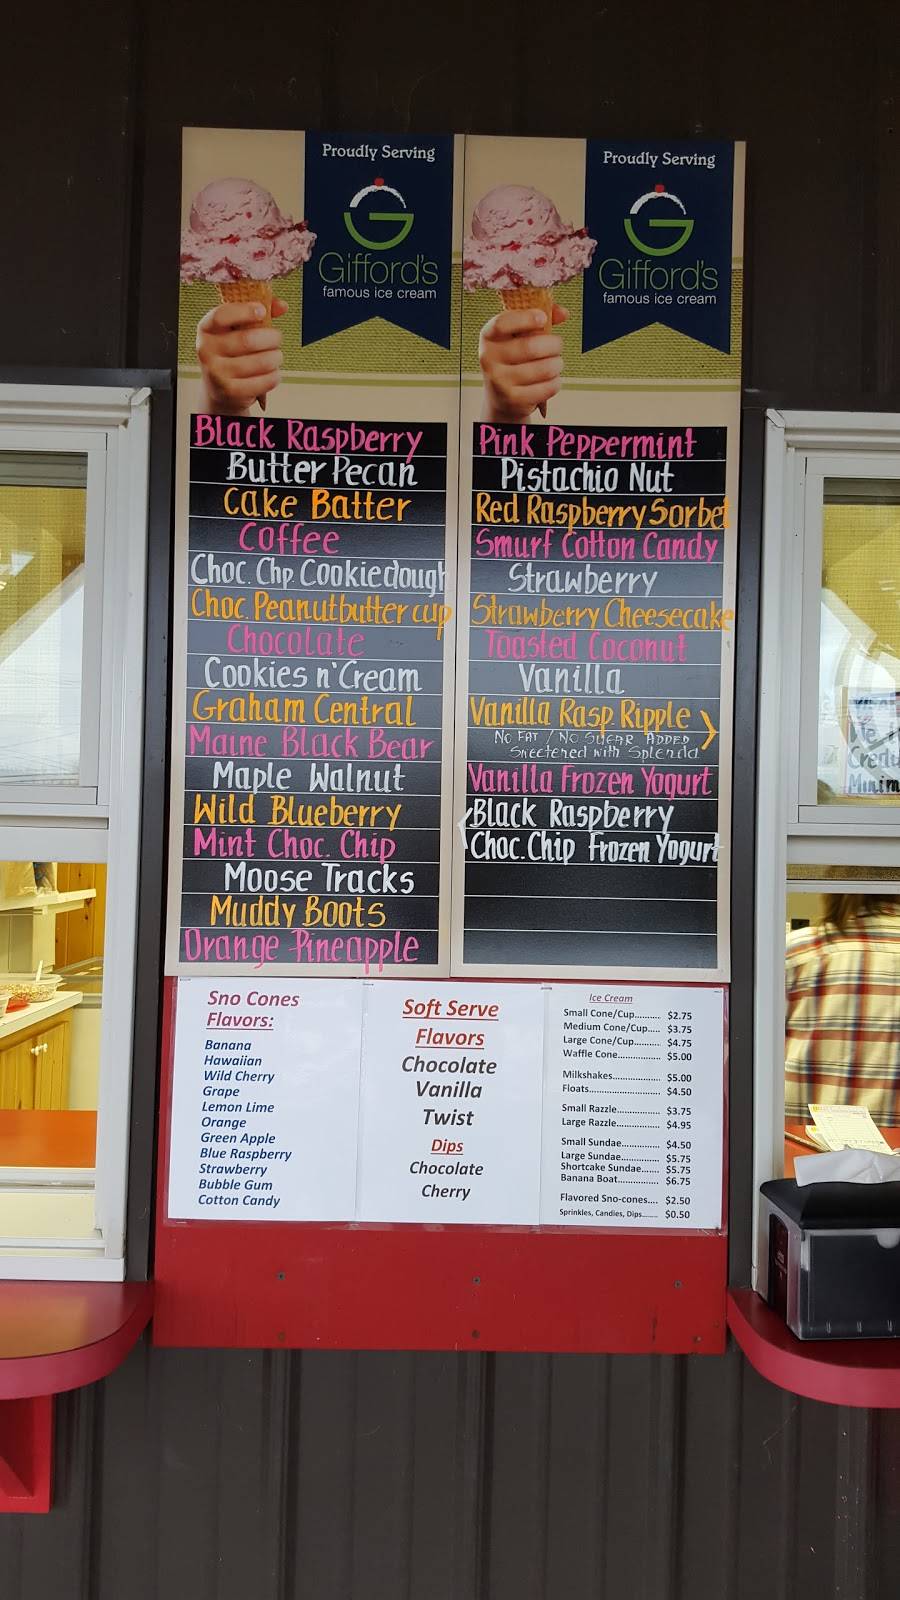 Proudly Serving
Gifford's
famous ice cream
Black Raspberry
Butter Pecan
Cake Batter
Coffee
Choc. Chp Cookiedough
Choc. Peanutbutter cup
Chocolate
Cookies n' Cream
Graham Central
Maine Black Bear
Maple Walnut
Wild Blueberry
Mint Choc. Chip
Moose Tracks
Muddy Boots
Orange Pineapple
Proudly Serving
Gifford's
famous ice cream
Pink Peppermint
Pistachio Nut
Red Raspberry Sorbet
Smurf Cotton Candy
Strawberry
Strawberry Cheesecake
Toasted Coconut
Vanilla
Vanilla Rasp. Ripple
No FAT / No SUGAR ADDED
Sweetened with Splenda
Vanilla Frozen Yogurt
Black Raspberry
Choc. Chip Frozen Yogurt
Sno Cones
Flavors:
Banana
Hawaiian
Wild Cherry
Grape
Lemon Lime
Orange
Green Apple
Blue Raspberry
Strawberry
Bubble Gum
Cotton Candy
Soft Serve
Flavors
Chocolate
Vanilla
Twist
Dips
Chocolate
Cherry
Ice Cream
Small Cone/Cup.......... $2.75
Medium Cone/Cup..... $3.75
Large Cone/Cup.......... $4.75
Waffle Cone................ $5.00
Milkshakes................... $5.00
Floats............................ $4.50
Small Razzle................. $3.75
Large Razzle................. $4.95
Small Sundae............... $4.50
Large Sundae............... $5.75
Shortcake Sundae....... $5.75
Banana Boat................ $6.75
Flavored Sno-cones.... $2.50
Sprinkles, Candies, Dips....... $0.50